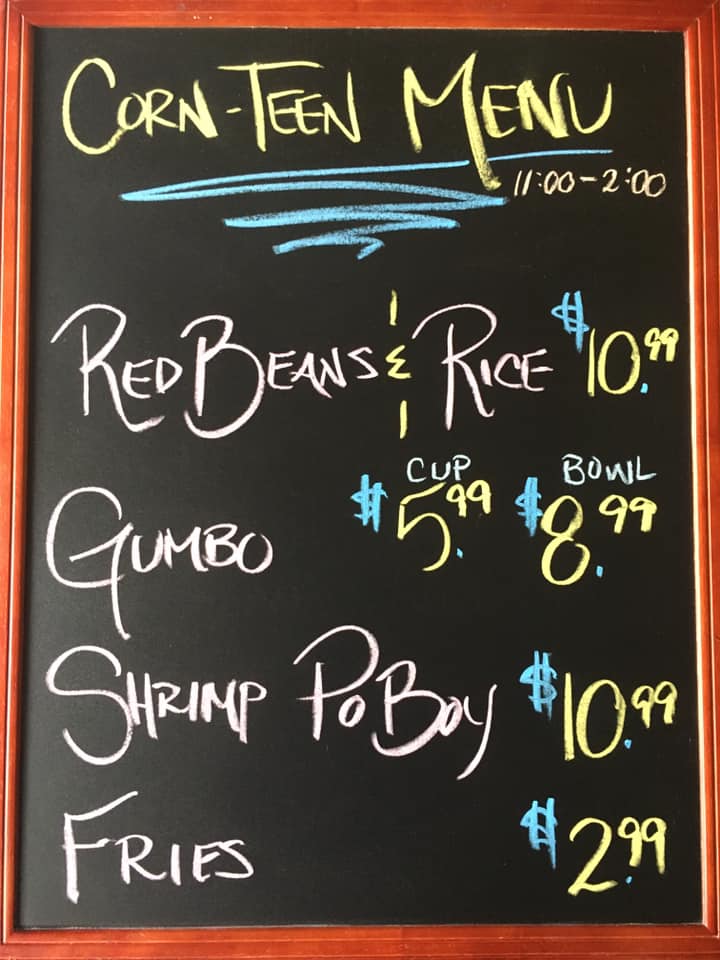 Corn-Teen Menu
11:00-2:00
Red Beans & Rice $10.99
Cup Bowl
Gumbo $5.99 $8.99
Shrimp PoBoy $10.99
Fries $2.99